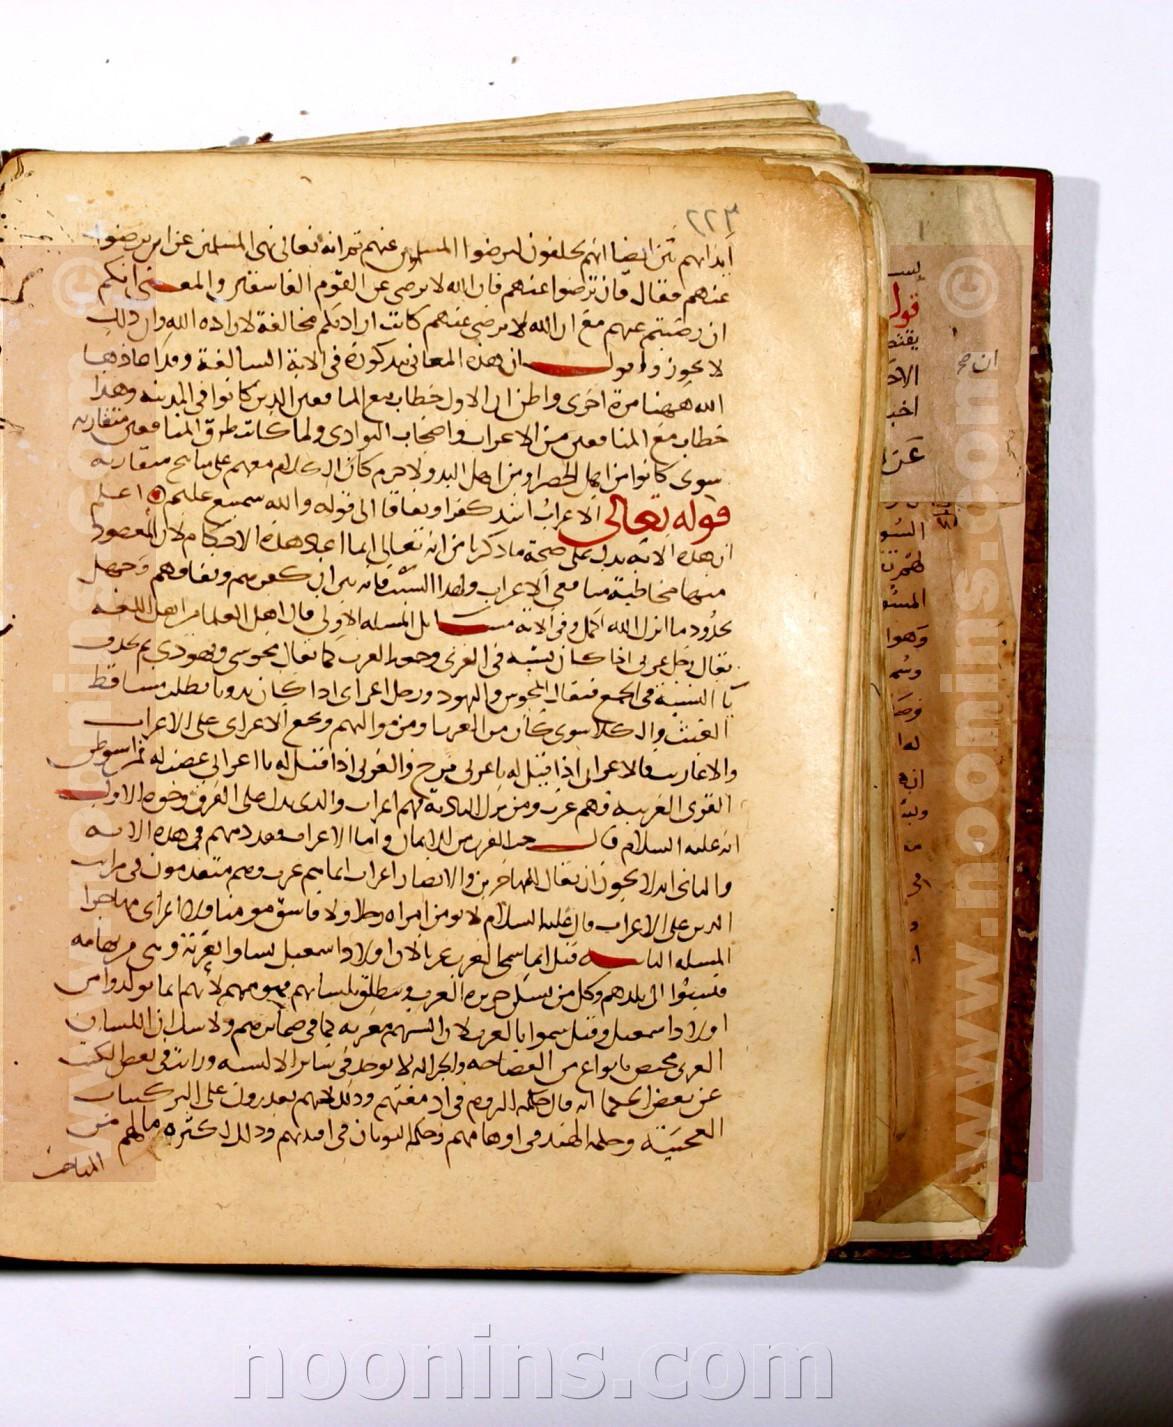 ٢٢٣
ايذائهم بين ايضا انهم يحلفون ليرضوا المسلمين عنهم ثم انه تعالى نهى المسلمين عن ان يرضوا
عنهم فقال فان ترضوا عنهم فان الله لا يرضى عن القوم الفاسقين والمعنى انكم
ان رضيتم عنهم مع ان الله لا يرضى عنهم كانت ارادتكم مخالفة لارادة الله وان ذلك
لا يجوز واقول ان هذه المعاني مذكورة في الاية السالفة وقد اعادها
الله ههنا مرة اخرى واظن ان الاول خطاب مع المنافقين الذين كانوا في المدينه وهذا
خطاب مع المنافقين من الاعراب واصحاب البوادي ولما كانت طرق المنافقين متقاربه
سوى كانوا من اهل الحضر او من اهل البدو لا جرم كان الكلام معهم على مناهج متقاربه
قوله تعالى الاعراب اشد كفرا ونفاقا الى قوله والله سميع عليم اعلم
ان هذه الاية تدل على صحة ما ذكرنا من انه تعالى انما اعاد هذه الاحكام لان المقصود
منها مخاطبة منافقي الاعراب ولهذا السبب فانه بين ان كفرهم ونفاقهم وجهل
بحدود ما انزل الله اكمل وفي الاية مسائل المسله الاولى قال اهل العلم من اهل اللغه
يقال رجل عربي اذا كان نسبه في العرب وجمعه العرب كما تقال مجوسي ويهودي ثم يحذف
يا النسبة في الجمع فيقال المجوس واليهود ورجل اعرابي اذا كان بدويا يطلب مساقط
الغيث والكلا سوى كان من العرب او من مواليهم ويجمع الاعرابي على الاعراب
والاعاريب فالاعرابي اذا قيل له يا عربي فرح والعربي اذا قيل له يا اعرابي غضب له فمن استوطن
القرى العربيه فهم عرب ومن نزل البادية فهم اعراب والذي يدل على الفرق وجوه الاول
انه عليه السلام قال حب العرب من الايمان واما الاعراب فقد ذمهم في هذه الايه
والثاني انه لا يجوز ان يقال للمهاجرين والانصار اعراب انما هم عرب وهم متقدمون في مراتب
الدين على الاعراب قال عليه السلام لا تومن امراه رجلا ولا فاسق مومنا ولا اعرابي مهاجرا
المسله الثانيه قيل انما سمي العرب عربا لان اولاد اسمعيل نشاوا بعربة وهي من تهامه
فنسبوا الى بلدهم وكل من يسكن جزيره العرب وينطق بلسانهم فهو منهم لانهم انما تولدوا من
اولاد اسمعيل وقيل سموا بالعرب لان السنتهم معربه عما في ضمائرهم ولا شك ان اللسان
العربي مختص بانواع من الفصاحه والجزاله لا توجد في ساير الالسنه ورايت في بعض الكتب
عن بعض الحكما انه قال حكمه الروم في ادمغتهم وذلك لانهم يقدرون على التركيبات
العجيبة وحكمه الهند في اوهامهم وحكمه اليونان في افئدتهم وذلك لكثره ما لهم من
المباحث
ان صح
قوله
noonins.com
www.noonins.com ©
www.noonins.com ©